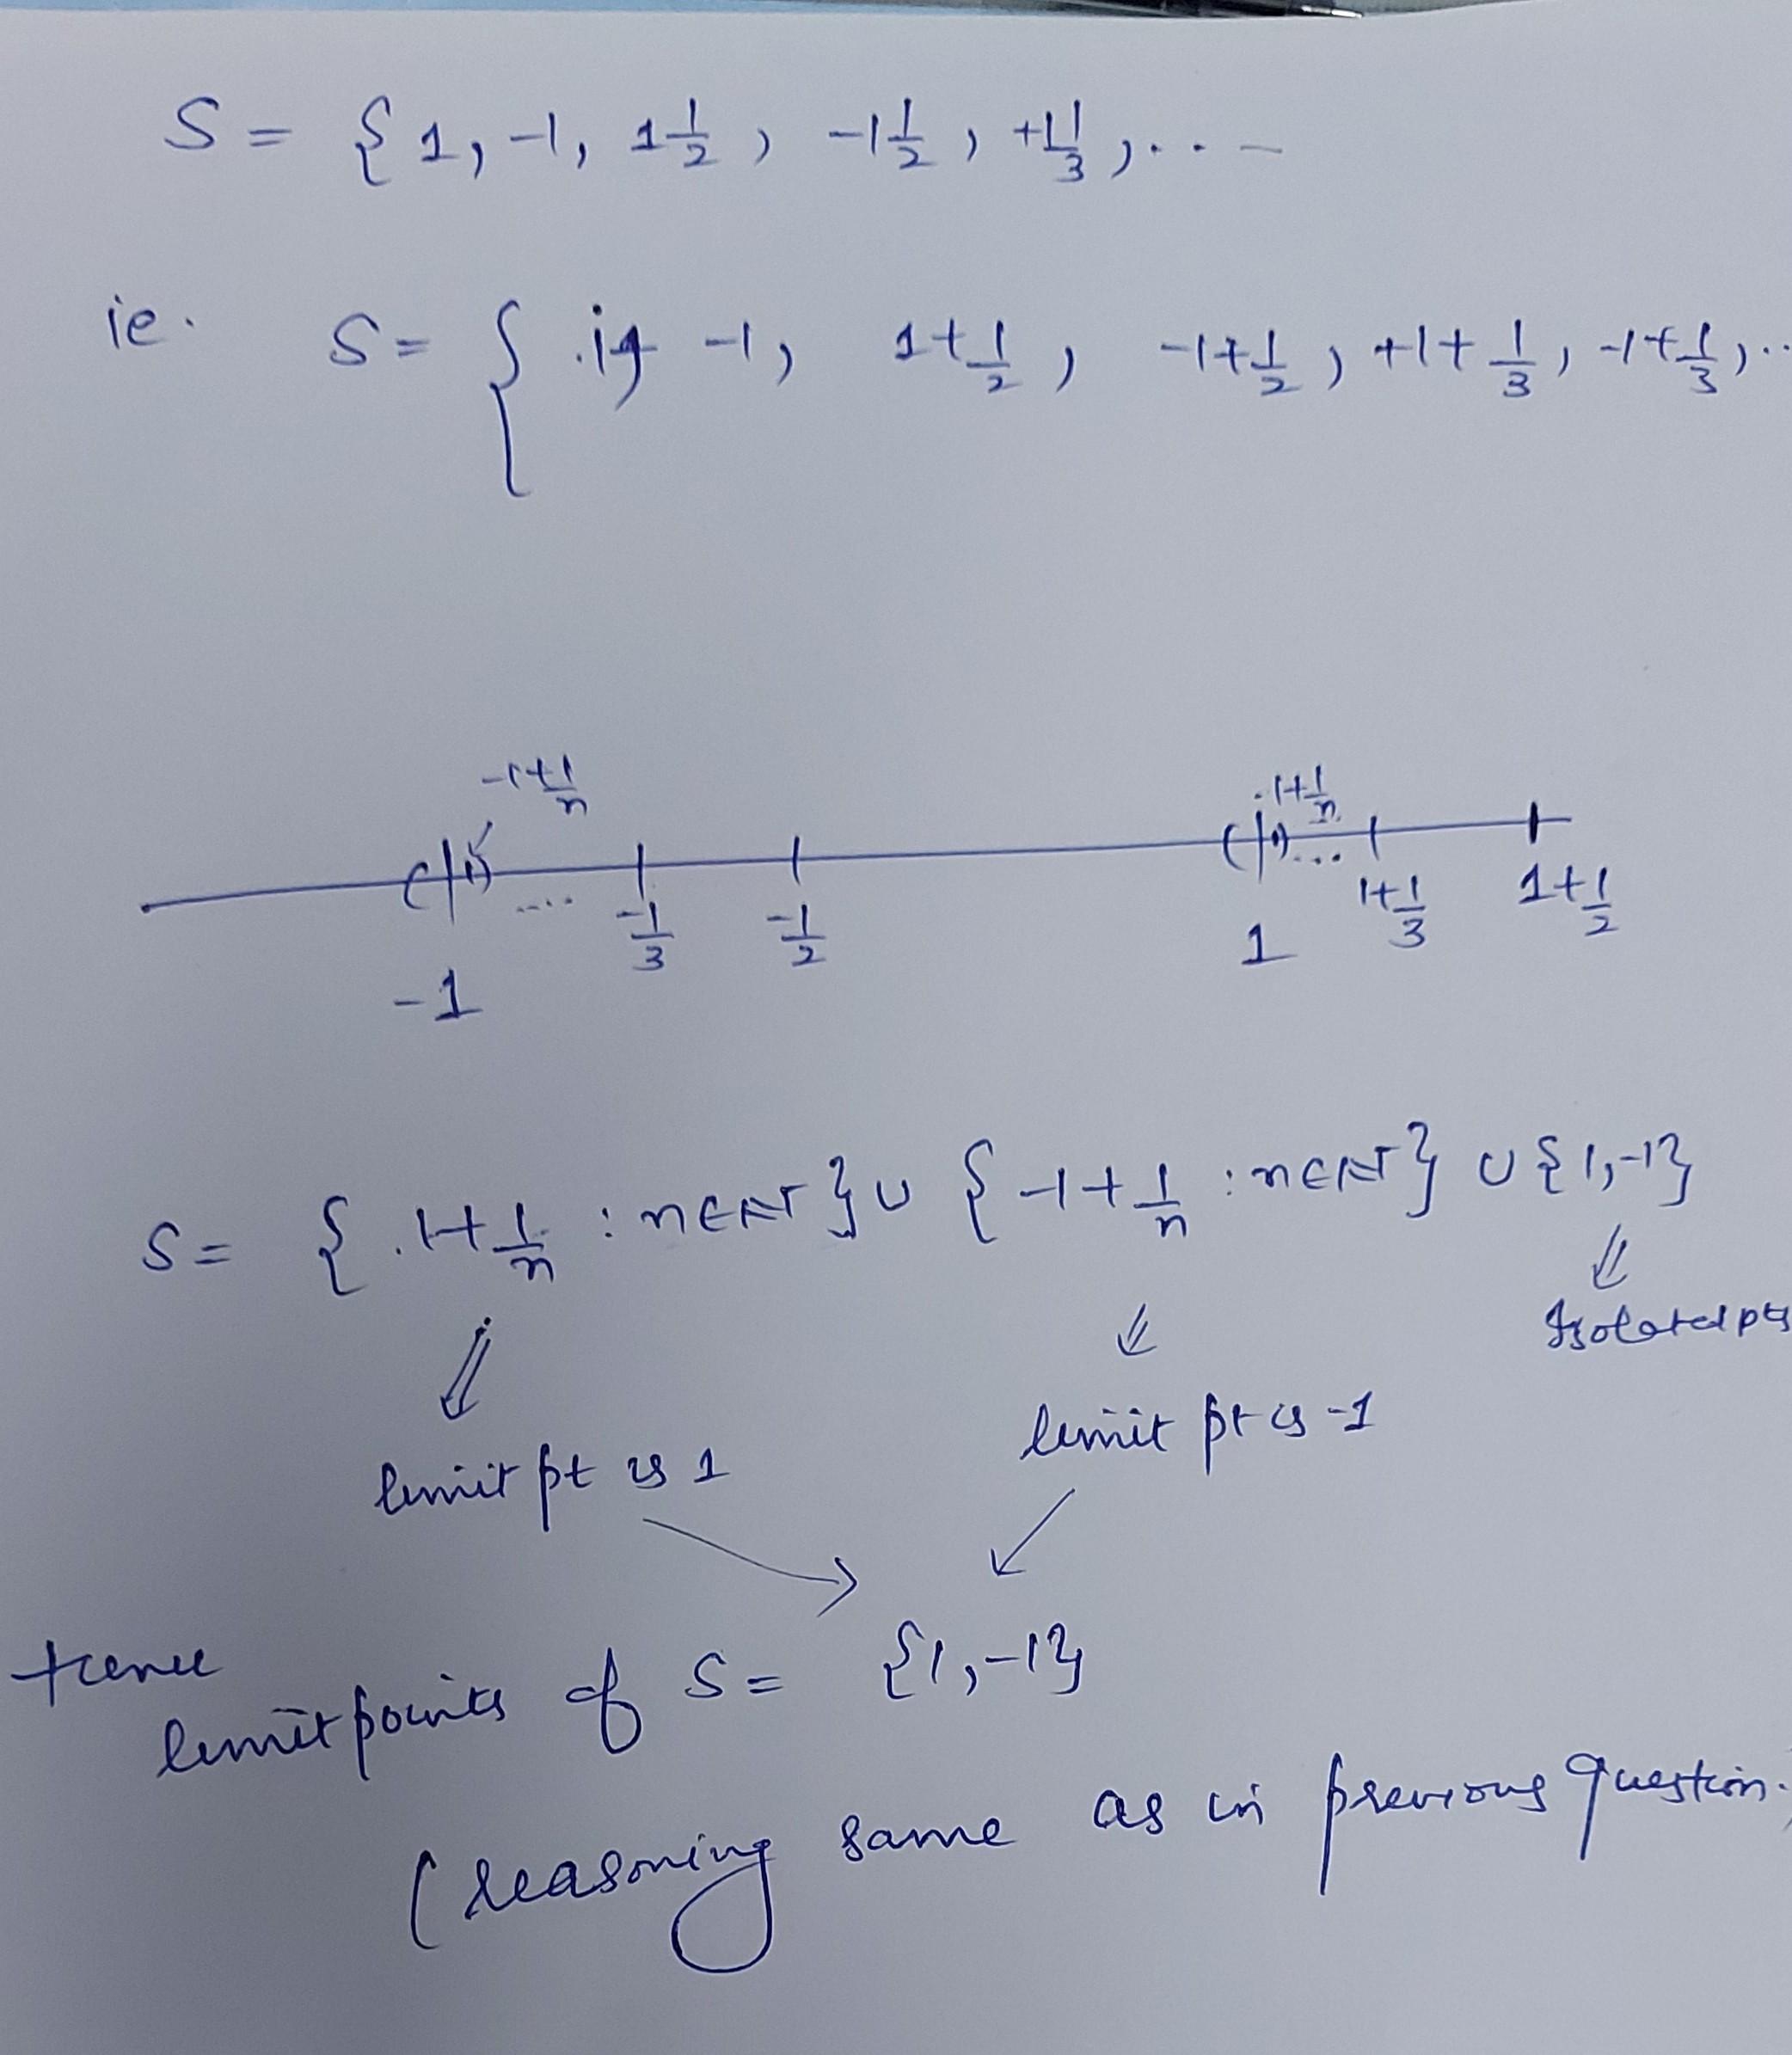 S = { 1, -1, 1 1/2, -1 1/2, +1 1/3, ...
ie. S = { 1, -1, 1+1/2, -1+1/2, +1+1/3, -1+1/3, ..
-1+1/n 1+1/n
.... ...
-1 -1/3 -1/2 1 1+1/3 1+1/2
S = { 1+1/n : n∈N } ∪ { -1+1/n : n∈N } ∪ {1,-1}
⇓ ⇓ ⇓
Isolated pts
limit pt is 1 limit pt is -1
Hence
limit points of S = {1,-1}
(reasoning same as in previous question.)